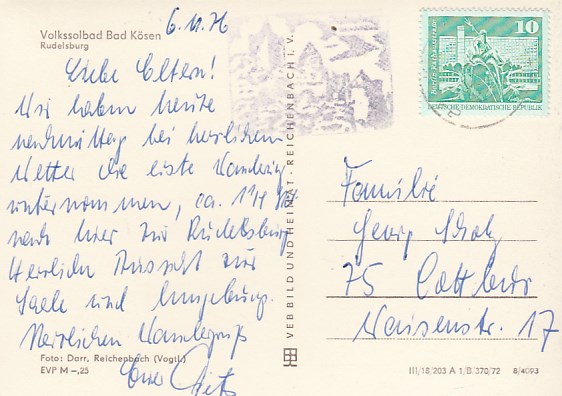 6.11.76
Volkssolbad Bad Kösen
Rudelsburg
Liebe Eltern!
Wir haben heute
nachmittag bei herrlichem
Wetter die erste Wanderung
unternommen, ca. 1 1/4 Std
nach hier zur Rudelsburg
Herrlich Aussicht zur
Saale und Umgebung.
Herzlichen Wandergruß
Euer
Foto: Darr, Reichenbach (Vogtl.)
EVP M –,25
VEB BILD UND HEIMAT · REICHENBACH I. V.
10
DEUTSCHE DEMOKRATISCHE REPUBLIK
Familie
Georg Scholz
75 Cottbus
Waisenstr. 17
III/18/203 A 1/B/370/72 8/4093